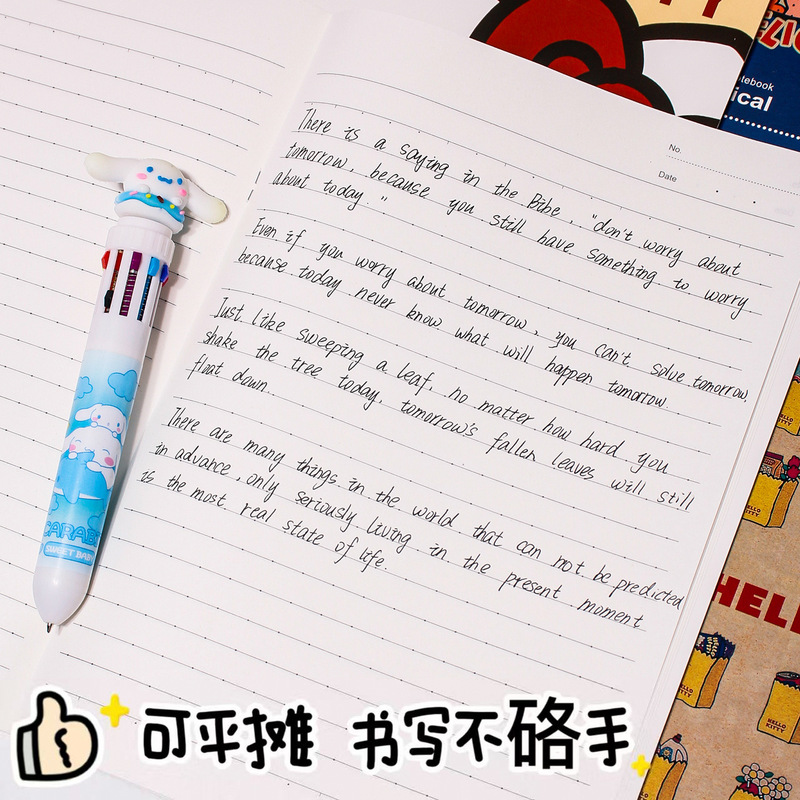 otebook
ical
No.
Date
There is a saying in the Bibe, "don't worry about
tomorrow, because you still have something to worry
about today."
Even if you worry about tomorrow, you can't solve tomorrow,
because today never know what will happen tomorrow.
Just like sweeping a leaf, no matter how hard you
shake the tree today, tomorrow's fallen leaves will still
float down.
There are many things in the world that can not be predicted
in advance, only seriously living in the present moment
is the most real state of life.
CARAB
SWEET BAB
HELL
HELLO
KITTY
HELLO
KITTY
HELLO
KITTY
可平摊 书写不硌手